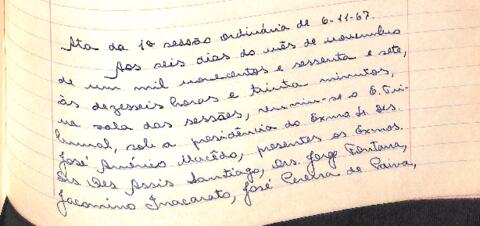 Ata da 1ª sessão ordinária de 6-11-67.
Aos seis dias do mês de novembro
de um mil novecentos e sessenta e sete,
às dezesseis horas e trinta minutos,
na sala das sessões, reuniu-se o E. Tri-
bunal, sob a presidência do Exmo Sr. Des.
José Américo Macêdo, presentes os Exmos.
Srs. Des Assis Santiago, Drs. Jorge Fontana,
Jacomino Inacarato, José Pereira de Paiva,